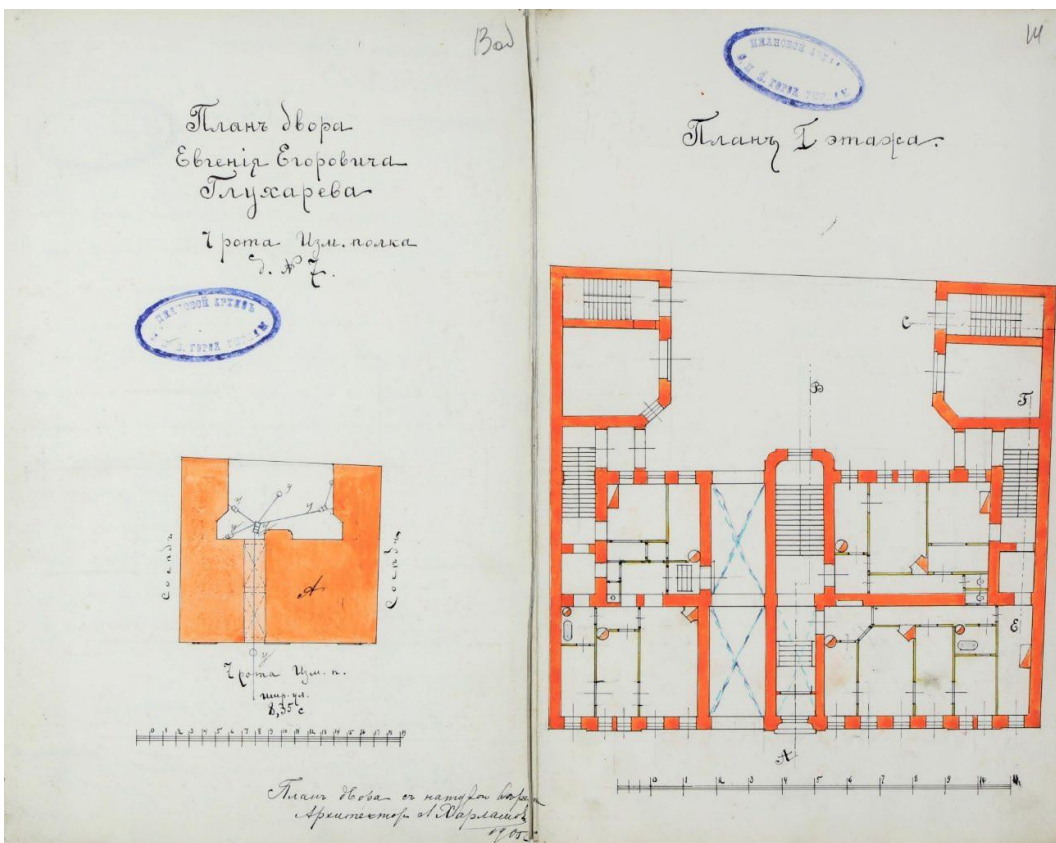 13 об
Планъ двора
Евгенія Егоровича
Глухарева
7 рота Изм. полка
д. № 7.
Сосѣдъ
А
Сосѣдъ
7 рота Изм. п.
шир. ул.
8,35 с
0 1 2 3 4 5 6 7 8 9 10 11 12 13 14 15 16 17 18 19
Планъ двора съ натурой
Архитектор
1905 г.
14
Планъ I этажа.
С
В
Г
Е
А
0 1 2 3 4 5 6 7 8 9 10 11